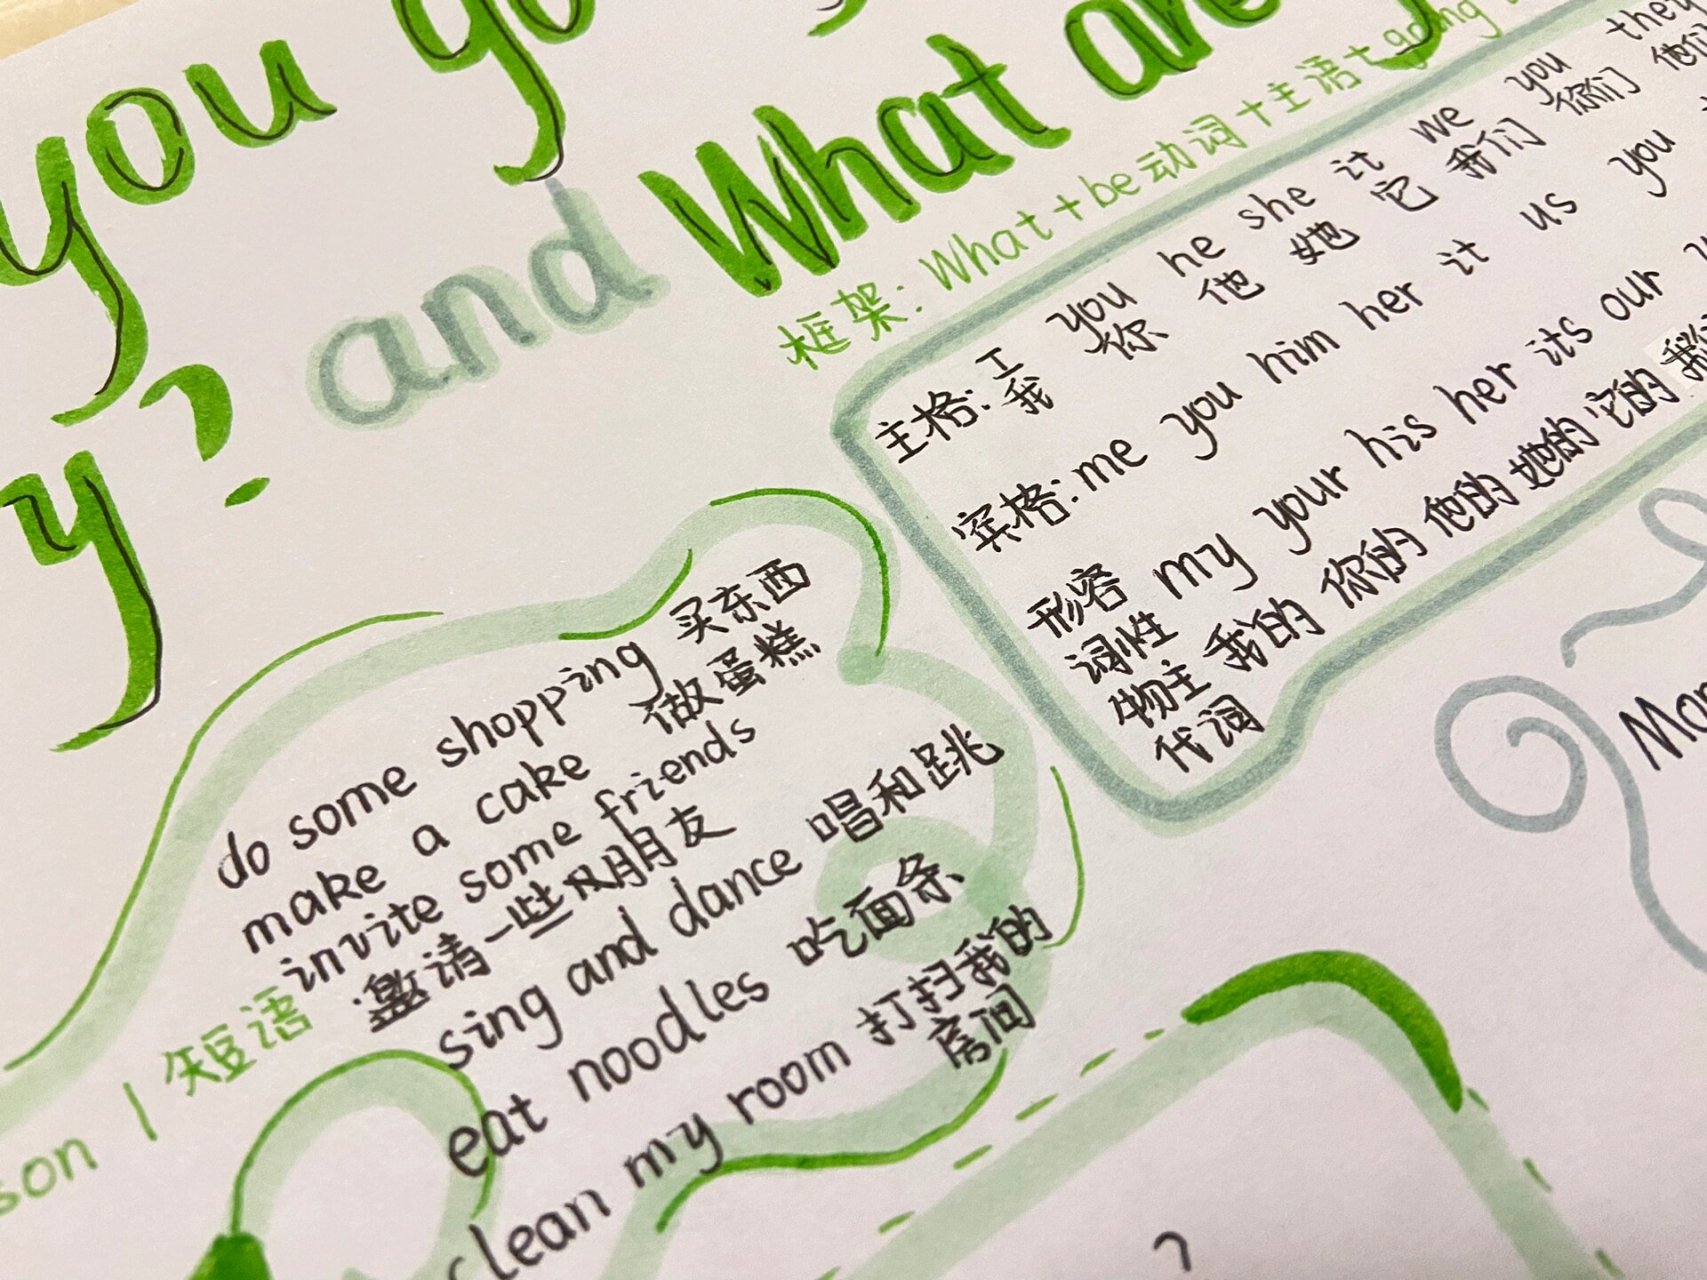 you go
y?
and What are y
框架: What + be动词 + 主语 + going
主格: I you he she it we you they
我 你 他 她 它 我们 你们 他们
宾格: me you him her it us you
形容词性物主代词 my your his her its our
我的 你的 他的 她的 它的
do some shopping 买东西
make a cake 做蛋糕
invite some friends
邀请一些朋友
sing and dance 唱和跳
eat noodles 吃面条
clean my room 打扫我的
房间
son 1 短语
Mon
?